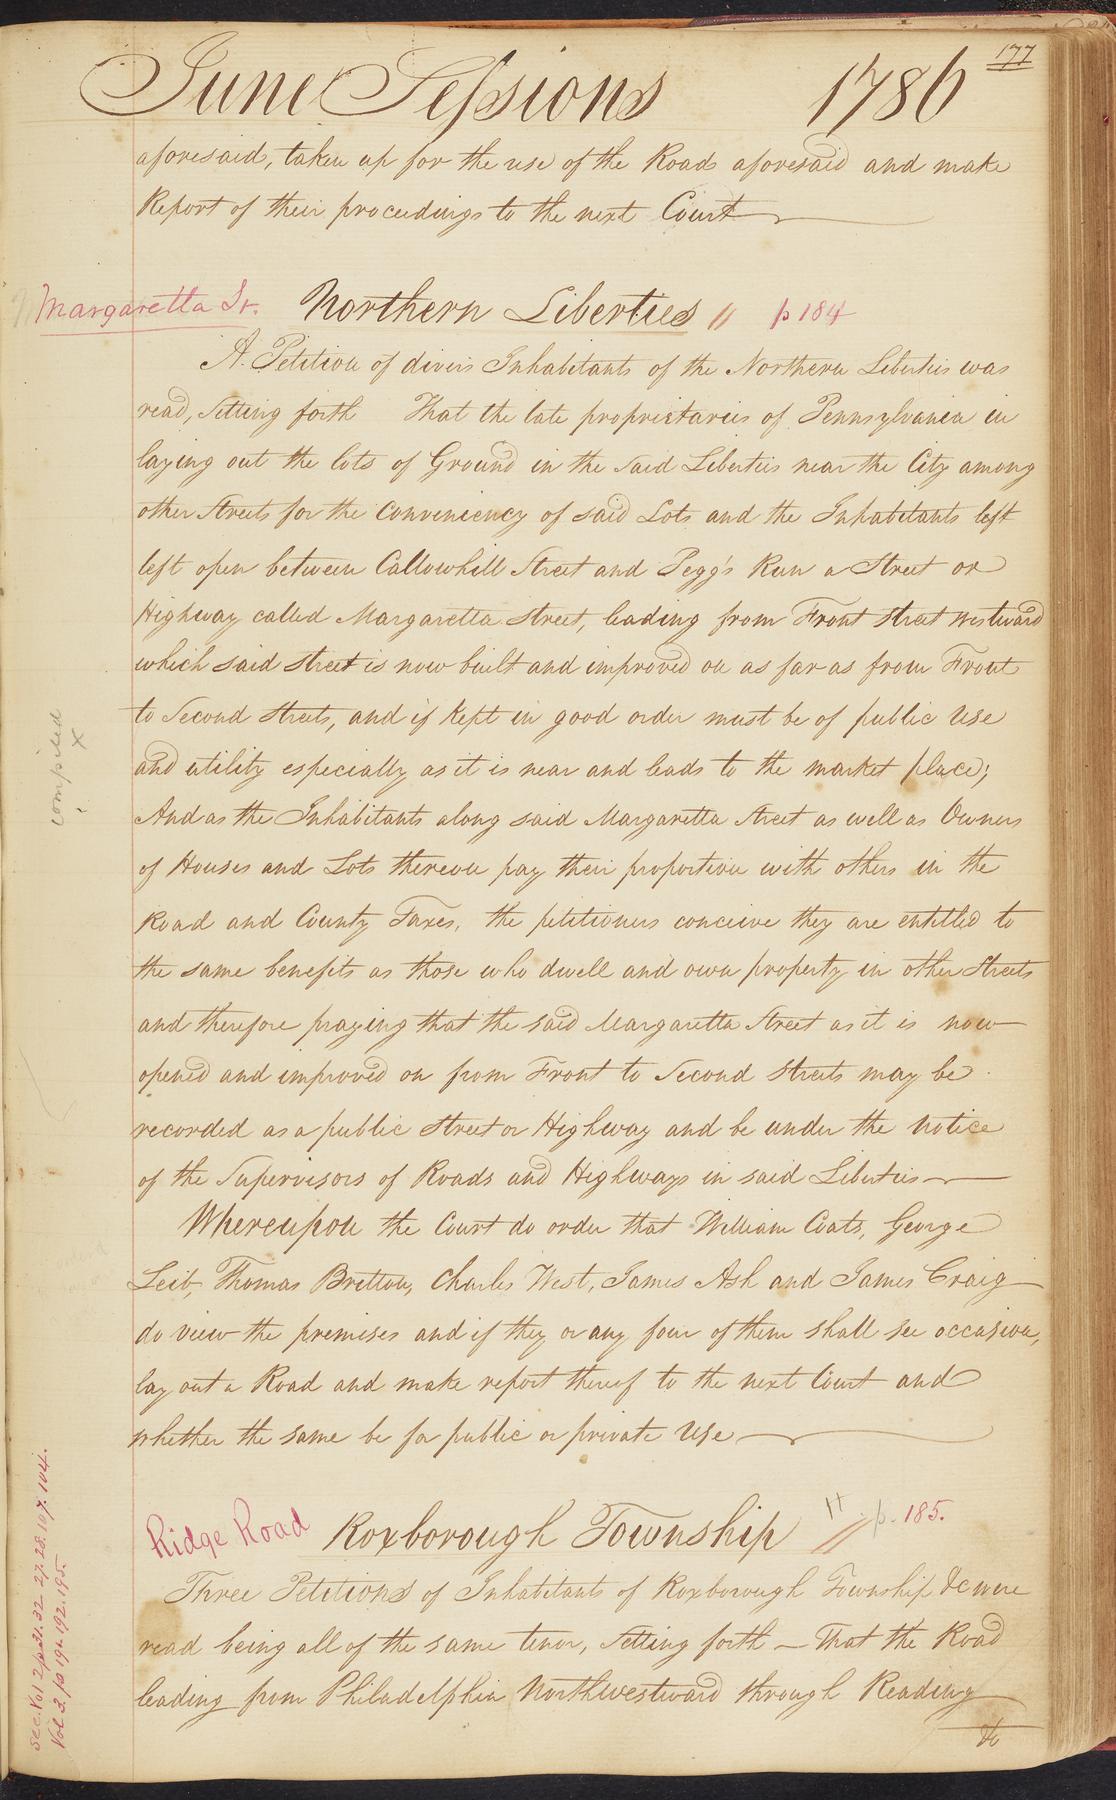 177
June Sessions 1786
aforesaid, taken up for the use of the Road aforesaid and make
Report of their proceedings to the next Court
Margaretta St. Northern Liberties // p 184
A Petition of divers Inhabitants of the Northern Liberties was
read, Setting forth That the late proprietaries of Pennsylvania in
laying out the lots of Ground in the said Liberties near the City among
other Streets for the conveniency of said Lots and the Inhabitants left
left open between Callowhill Street and Pegg's Run a Street or
Highway called Margaretta Street, leading from Front Street westward
which said street is now built and improved on as far as from Front
to Second Streets, and if kept in good order must be of public Use
and utility especially as it is near and leads to the market place;
And as the Inhabitants along said Margaretta Street as well as Owners
of Houses and Lots thereon pay their proportion with others in the
Road and County Taxes, the petitioners conceive they are entitled to
the same benefits as those who dwell and own property in other Streets
and therefore praying that the said Margaretta Street as it is now
opened and improved on from Front to Second Streets may be
recorded as a public Street or Highway and be under the notice
of the Supervisors of Roads and Highways in said Liberties
Whereupon the Court do order that William Coats, George
Leib, Thomas Britton, Charles West, James Ash and James Craig
do view the premises and if they or any four of them shall see occasion,
lay out a Road and make report thereof to the next Court and
whether the same be for public or private Use
compiled x
Ridge Road Roxborough Township // p. 185.
Three Petitions of Inhabitants of Roxborough Township &c were
read being all of the same tenor, Setting forth — That the Road
leading from Philadelphia Northwestward through Reading
&c
See Vol 2 p 31.32 27.28.107.104.
Vol 3. p 191.192.195.